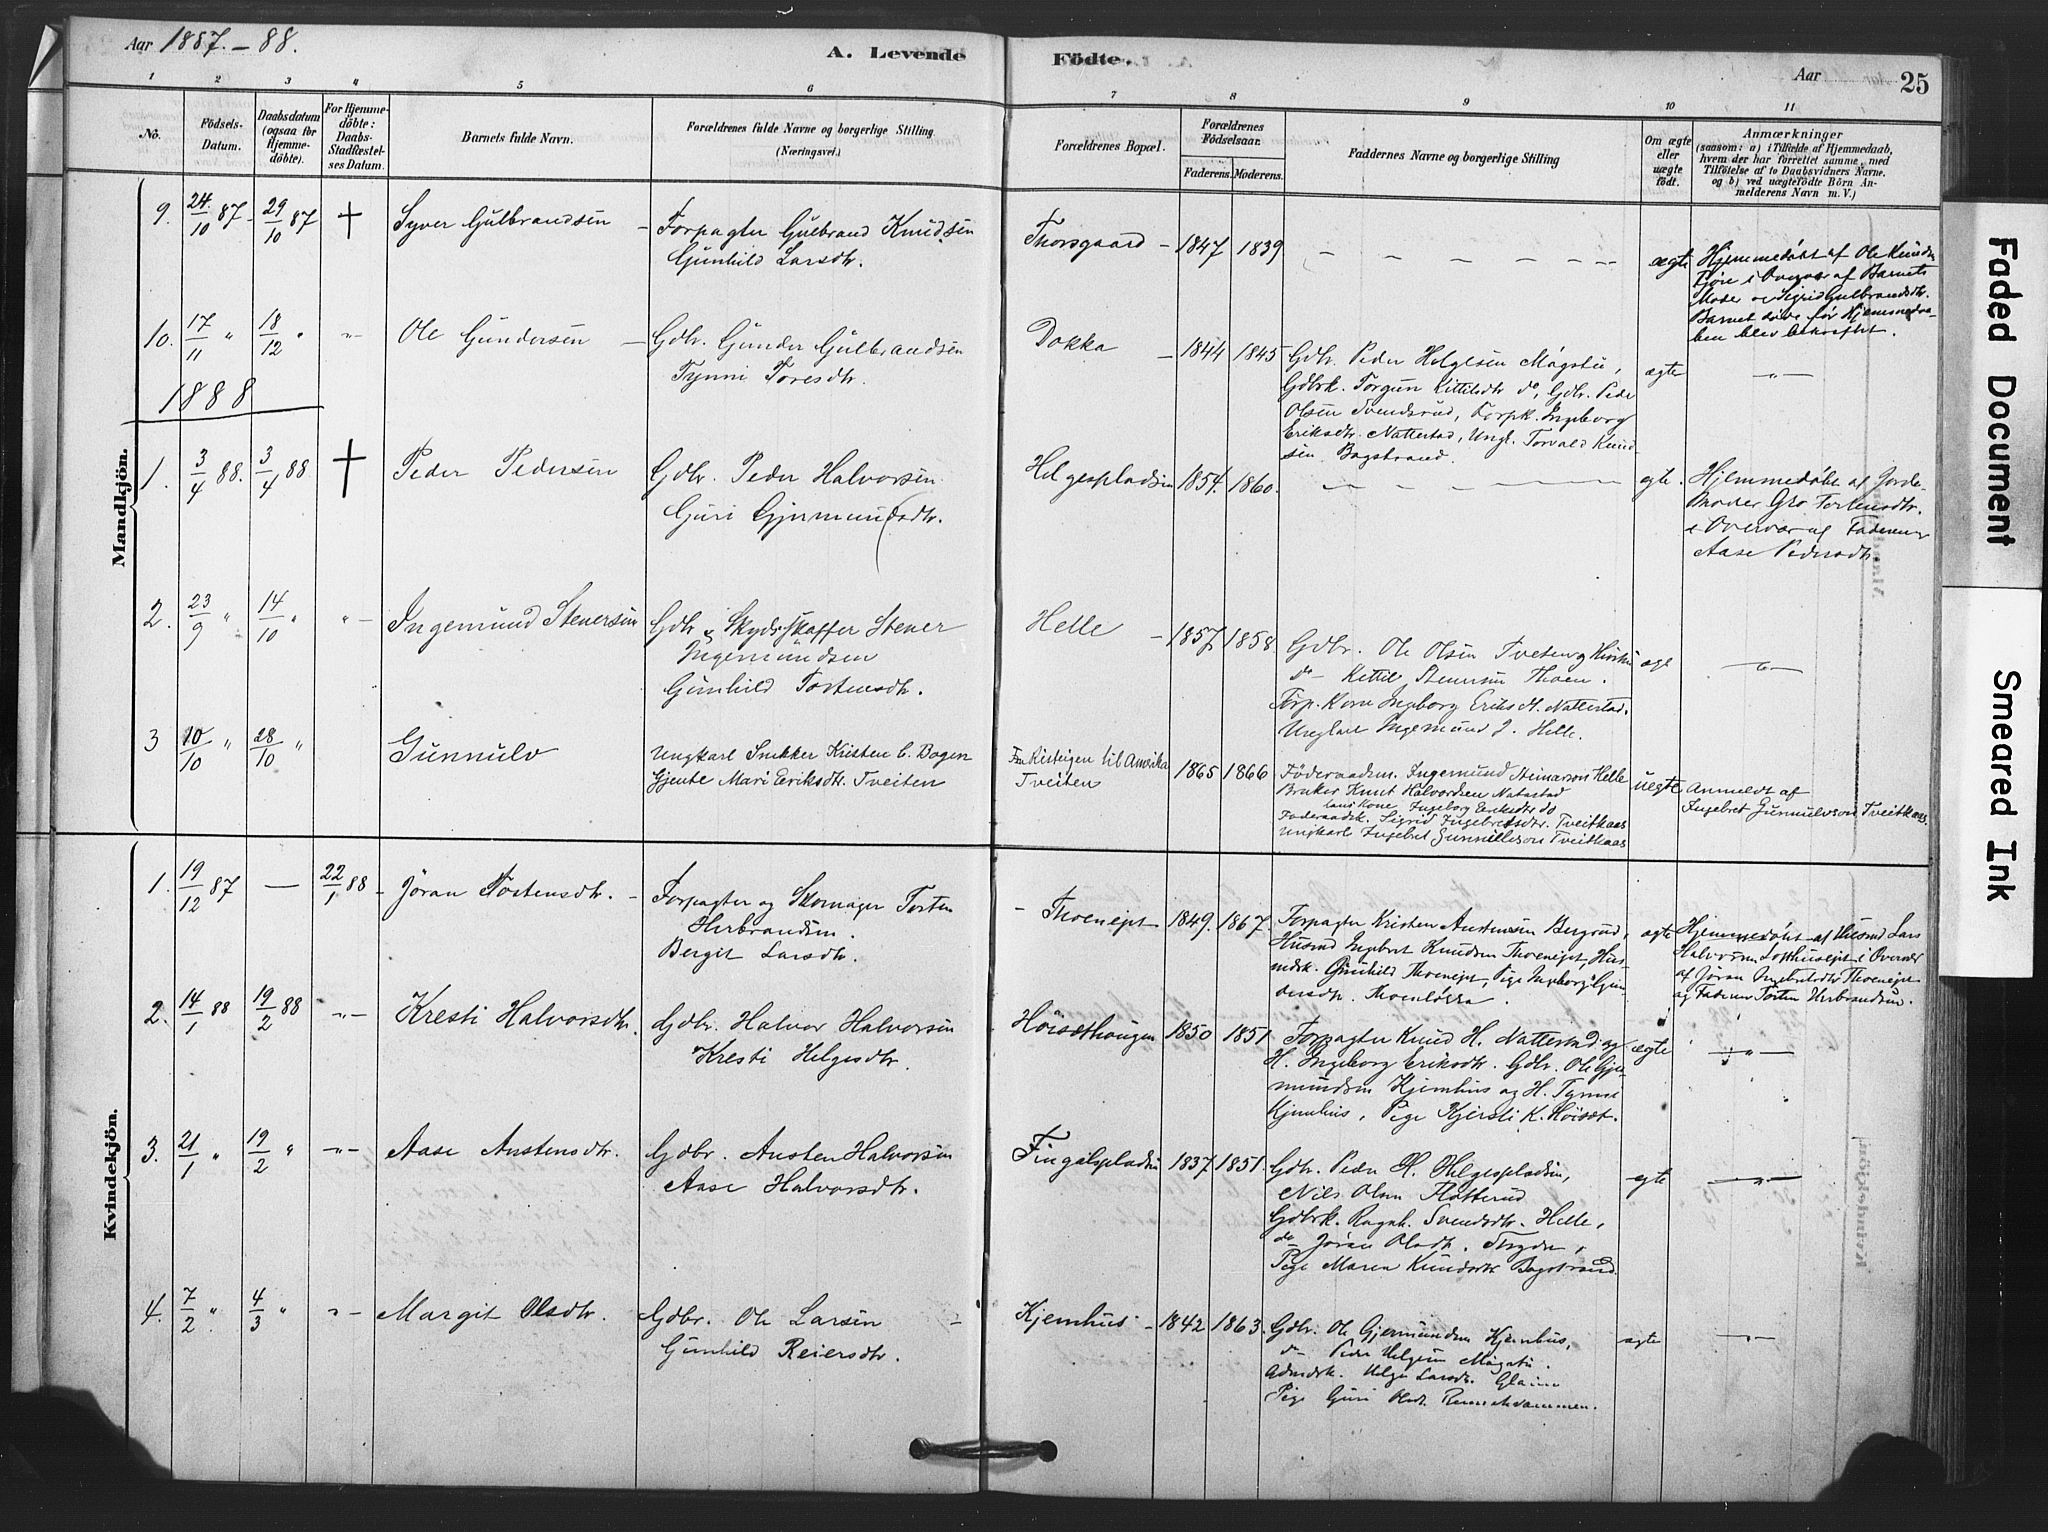 Aar 1887.-88.
A. Levende
Födte.
Aar
25
1
2
3
4
5
6
7
8
9
10
11
No.
Födsels-
Datum.
Daabsdatum
(ogsaa for
Hjemme-
döbte).
For Hjemme-
döbte:
Daabs-
Stadfæstel-
ses Datum.
Barnets fulde Navn.
Forældrenes fulde Navne og borgerlige Stilling
(Næringsvei.)
Forældrenes Bopæl.
Forældrenes
Födselsaar.
Faderens.
Moderens.
Faddernes Navne og borgerlige Stilling
Om ægte
eller
uægte
födt.
Anmærkninger
(saasom: a) i Tilfælde af Hjemmedaab,
hvem der har forrettet samme, med
Tilföielse af to Daabsvidners Navne.
og b) ved uægtefödte Börn An-
melderens Navn m. V.)
Mandkjön.
9. 24/10 87 - 29/10 87 + Syver Gulbrandsen -
Forpagter Gulbrand Knudsen
Gunhild Larsdtr.
Thorsgaard - 1847 1839 - - - - - - ægte
Hjemmedøbt af Ole Knudsen
i Overvær af Barnets
Moder og Sigrid Gulbrandsdtr.
Barnet døde før Hjemmedaa-
ben blev bekræftet.
10. 17/11 " 18/12 " -"- Ole Gundersen -
Gdbr. Gunder Gulbrandsen
Tynni Toresdtr.
Dokka - 1844 1845
Gdbr. Peder Helgesen Møgstu,
Gdbrk. Torgun Kittilsdtr do, Gdbr. Peder
Olsen Svendsrud, Forpk. Ingeborg
Eriksdtr. Nattestad, Ungk. Torvald Knud-
sen Bagstrand.
ægte -"-
1888
1. 3/4 88. 3/4 88 + Peder Pedersen
Gdbr. Peder Halvorsen
Guri Gjermundsdtr.
Helgespladsen 1854. 1860. - - - - - ægte.
Hjemmedøbt af Jorde-
moder Gro Torstensdtr.
i Overvær af Faderen og
Aase Pedersdtr.
2. 23/9 " 14/10 " "- Ingemund Stenersen
Gdbr & Skydsskaffer Stener
Ingemundsen
Gunhild Torstensdtr.
Helle - 1857 1858
Gdbr. Ole Olsen Tveten og Hustru
do - Kittil Stenersen Thoen.
Forp. Kone Ingeborg Eriksdt. Nattestad.
Ungkarl Ingemund J. Helle.
ægt -"-
3 10/10 " 28/10 " Gunnulv
Ungkarl Snekker Kristen C. Bogen
Gjente Mari Eriksdtr. Tveiten
til Amerika
Tveiten
1865 1866
Föderaadsm. Ingemund Steinarson Helle
Bruker Knut Halvordsen Natastad
hans Kone Ingeborg Eriksdtr do
Föderaadsk. Sigrid Ingebretsdtr. Tveitkaas
Ungkarl Ingebret Gunnulvson Tveitkaas
uegte
Anmeldt af
Ingebret Gunnulvson Tveitkaas.
Kvindekjön.
1. 19/12 87 - 22/1 88 - Jöran Tostensdtr. -
Forpagter og Skomager Torsten
Herbrandsen.
Bergit Larsdtr.
- Thoenejet 1849. 1867.
Forpagter Kristen Austensen Bergrud,
Husmd Ingebret Knudsen Thoeneiet, Hus-
mdsk. Gunhild Thoeneiet, Pige Ingeborg Gun-
dersdtr. Thoenløkka.
ægte
Hjemmedøbt af Husmd Lars
Halvorsen Lofthuseiet i Overvær
af Jöran Ingebretsdtr Thoeneiet
og Faderen Torsten Herbrandsen.
2. 14/1 88 19/2 88 -"- Kresti Halvorsdtr.
Gdbr. Halvor Halvorsen
Kresti Helgesdtr.
Höisæthaugen 1850 1851
Forpagter Knud H. Nattestad og
H. Ingeborg Eriksdtr. Gdbr. Ole Gjer-
mundsen Kjemhus og H. Tynni
Kjemhus, Pige Kjersti K. Höisæt.
ægte -"-
3. 21/1 " 19/2 " -"- Aase Austensdtr.
Gdbr. Austen Halvorsen
Aase Halvorsdtr.
Fingalspladsen 1837 1851.
Gdbr. Peder H. Helgespladsen,
Nils Olsen Slotterud
Gdbrk. Ragnh. Svendsdtr. Helle,
do Jöran Olsdtr.
Pige Maren Knudsdtr Bagstrand.
ægte -"-
4. 7/2 " 4/3 " -"- Margit Olsdtr.
Gdbr. Ole Larsen -
Gunhild Reiersdtr.
Kjemhus - 1842 1863.
Gdbr. Ole Gjermundsen Kjemhus,
do - Peder Helgesen Møgstu.
Helge Larsdtr.
Pige Guri Olsdt.
ægte -"-
Faded Document
Smeared Ink